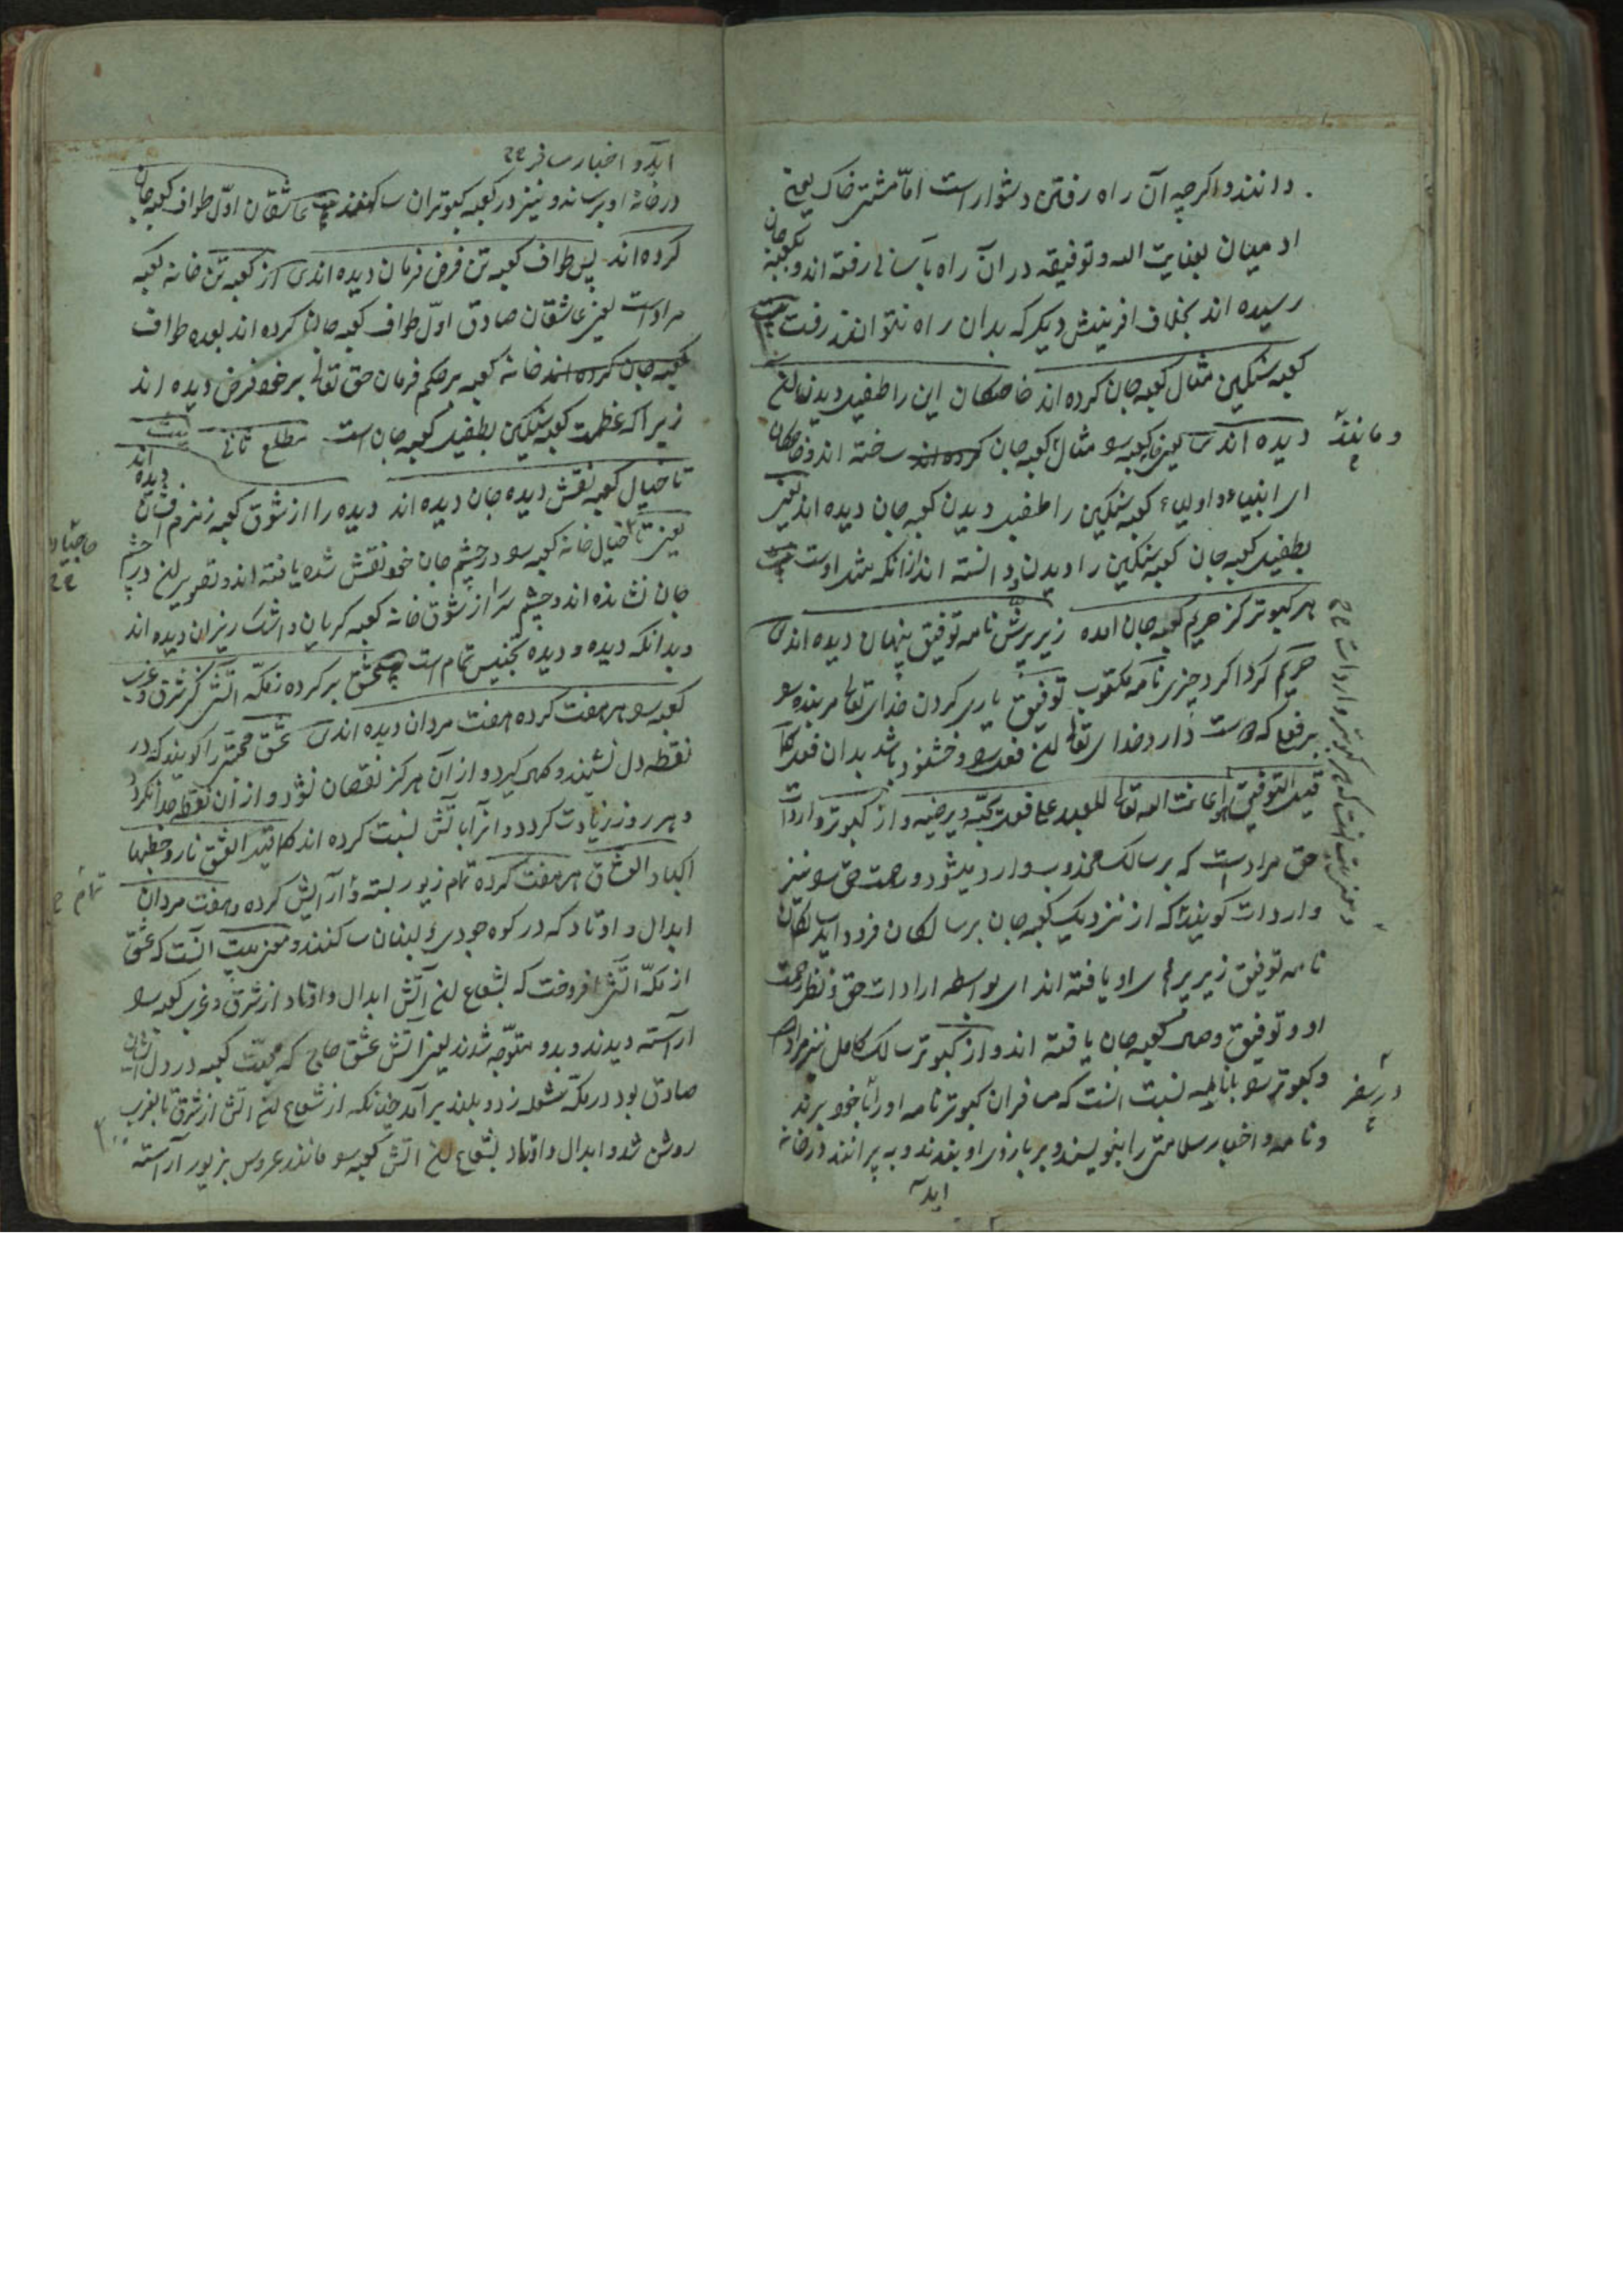 دانند و اگرچه آن راه رفتن دشوار است امّا مشتی خاک یعنی
ادمیان بعنایت الله و توفیقه در آن راه بآسانی رفته اند و بکعبه جان
رسیده اند بخلاف افرینش دیگر که بدان راه نتوانند رفت بیت
کعبه سنگین مثال کعبه جان کرده اند خاصگان این را طفیل دیدن آن
دیده اند یعنی کعبه مثال کعبه جان کرده اند ساخته اند و خاصگان
ومانند
ای انبیاء و اولیاء کعبه سنگین را طفیل دیدن کعبه جان دیده اند یعنی
بطفیل کعبه جان کعبه سنگین را دیدن دانسته اند از آنکه مثل اوست بیت
هر کبوتر کز حریم کعبه جان امده زیر پرّش نامه توفیق پنهان دیده اند
حریم گرداگرد چیزی نامه مکتوب توفیق یاری کردن خدای تعالی مر بنده
بر فعلی که دوست دارد خدای تعالی فعل و خشنود باشد بدان فعل کما
قیل التوفیق هو اعانت الله تعالی للعبد علی فعل یحبّه و یرضیه و از کبوتر واردات
حق مراد است که بر سالک مجذوب وارد میشود و رحمت حق نیز
واردات گویند که از نزدیک کعبه جان بر سالکان فرود آید سالکان
نامه توفیق زیر پر او یافته اند ای بواسطه ارادات حق و نظر رحمت
او و توفیق وصل کعبه جان یافته اند و از کبوتر سالک کامل نیز مراد
و کبوتر بانامه نسبت انست که مسافران کبوتر نامه اور با خود برند
در سفر
و نامه و اخبار سلامتی را بنویسند و بر بازوی او بندند و بپرانند در خانه
اید
اید و اخبار مسافر
در خانه او برساند و نیز در کعبه کبوتران ساکنند بیت عاشقان اوّل طواف کعبه جان
کرده اند پس طواف کعبه تن فرض فرمان دیده اند از کعبه تن خانه کعبه
مراد است یعنی عاشقان صادق اوّل طواف کعبه جان کرده اند بعده طواف
کعبه جان کرده اند خانه کعبه بر حکم فرمان حق تعالی بر خود فرض دیده اند
زیرا که عظمت کعبه سنگین بطفیل کعبه جان است مطلع ثانی بیت
تا خیال کعبه نقش دیده جان دیده اند دیده را از شوق کعبه زمزم افشان دیده اند
یعنی تا خیال خانه کعبه در چشم جان خود نقش شده یافته اند و تصویر در چشم
حاجیان
جان نشانده اند و چشم سر از شوق خانه کعبه گریان و اشک ریزان دیده اند
و بدانکه دیده و دیده تجنیس تمام است عشق بر کرده ز مکّه آتشی کز شرق و غرب
کعبه هر هفت کرده هفت مردان دیده اند عشق محبّتی را گویند که در
نقطه دل نشیند و از آن هرگز نقصان نشود و از آن نقطه جدا نگردد
و هر روز زیادت گردد و انرا باتش نسبت کرده اند کما قیل العشق نار و حطبها
اکباد العشّاق هر هفت کرده تمام زیور بسته و آرایش کرده و هفت مردان
تمام
ابدال و اوتاد که در کوه جودی و لبنان ساکنند و معنی بیت آنست که عشق
از مکّه آتشی افروخت که بشعاع آتش ابدال و اوتاد از شرق و غرب کعبه
آراسته دیدند و بدو متوّجه شدند یعنی آتش عشق حاجی که محبّت کعبه در دل
صادق بود در مکّه شعله زد و بلند بر آمد چنانکه از شعاع آتش از شرق تا بغرب
روشن شد و ابدال و اوتاد بشعاع آتش کعبه مانند عروس بزیور آراسته